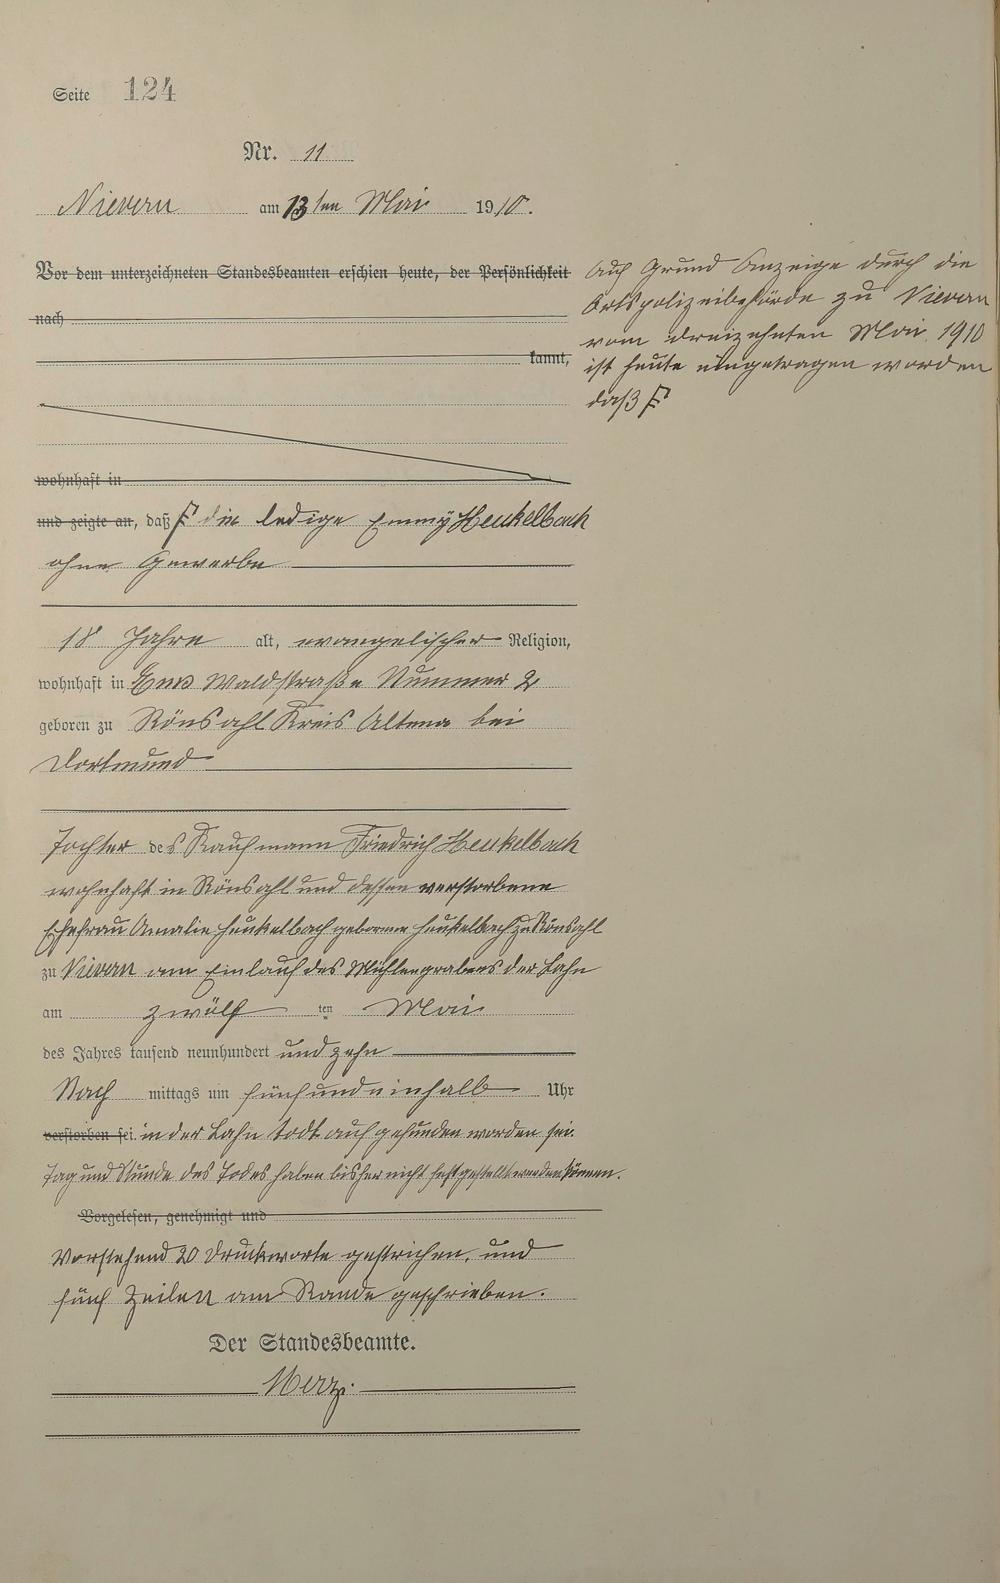 Seite 124
Nr. 11
Nievern am 13ten Mai 1910.
Vor dem unterzeichneten Standesbeamten erschien heute, der Persönlichkeit
nach
kannt,
wohnhaft in
und zeigte an, daß die ledige Emmy Heukelbach
ohne Gewerbe
18 Jahre alt, evangelischer Religion,
wohnhaft in Ems Waldstraße Nummer 2
geboren zu Rönsahl Kreis Altena bei
Dortmund
Tochter des Kaufmann Friedrich Heukelbach
wohnhaft in Rönsahl und dessen verstorbene
Ehefrau Amalie Heukelbach geborene Heukelbach zu Rönsahl
zu Nievern am Einlauf des Mühlengrabens der Lahn
am zwölf ten Mai
des Jahres tausend neunhundert und zehn
Nach mittags um fünfundeinhalb Uhr
verstorben sei. in der Lahn todt aufgefunden worden sei.
Tag und Stunde des Todes haben bisher nicht festgestellt werden können.
Vorgelesen, genehmigt und
Vorstehend 20 Druckworte gestrichen, und
fünf Zeilen am Rande geschrieben.
Der Standesbeamte.
Merz.
Auf Grund Anzeige durch die
Ortspolizeibehörde zu Nievern
vom dreizehnten Mai 1910
ist heute eingetragen worden
daß